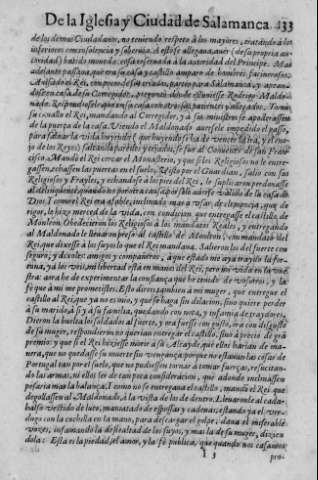 De la Iglesia y Ciudad de Salamanca. 433
de los demas Ciudadanos, no teniendo respeto à los mayores, tratando à los
inferiores con insolencia y sobervia. A esto se allegava, aver (de su propria au-
toridad) batido moneda; cosa reservada à la autoridad del Principe. Mas
adelante passava, que era su casa y castillo amparo de hombres facinerosos.
Avisado el Rei, con pocos de sus criados, parte para Salamanca, y apean-
dose en casa de su Corregidor, pregunta donde estuviesse Rodrigo Maldo-
nado. Respondiosele que en su casa con otros sus parientes y allegados. Tomò
su cavallo el Rei, mandando al Corregidor, y à sus ministros se apoderassen
de la puerta de la casa. Viendo el Maldonado aversele impedido el passo,
para salvar la vida huyendo (que huyendo se ha de vencer la ira, y el eno-
jo de los Reyes) saltando paredes y tejados, se fue al Convento de san Fran-
cisco. Mandò el Rei cercar el Monasterio, y que si los Religiosos no le entre-
gassen, echassen las puertas en el suelo. Visto por el Guardian, salio con sus
Religiosos y Frayles, y echandose à los pies del Rei, le suplicaron perdonasse
al delinquente, quando no por otra causa, por si
Dios. Y como el Rei era afable, inclinado mas à usar de clemencia, que de
rigor, le hizo merced de la vida, con condicion, que entregasse el castillo de
Monleon. Obedecieron los Religiosos à los mandatos Reales, y entregando
al Maldonado le llevaron preso al castillo de Monleon, con mandato del
Rei, que dixesse à los suyos lo que el Rei mandava. Salieron los del fuerte con
seguro, y dixoles: amigos y compañeros, à que estado me aya traydo la for-
tuna, ya les veis, mi libertad està en manos del Rei, pero mi vida en la vue-
stra: aora he de experimentar la confiança que he tenido de vosotros, y la
fè que à mi me prometistes. Esto direis tambien à mi muger, que entregue el
castillo al Rei, que ya no es mio, y que se haga sin dilacion, sino quiere perder
à su marido, à si y à su familia, quedando con nota, y infamia de traydores.
Dieron la buelta los soldados al fuerte, y ora fuesse con gusto, ora con disgusto
de su muger, respondieron no querian entregar el castillo, sino à precio de grã
premio: y que si el Rei hiziesse morir à su Alcayde, que ellos harian de ma-
nera, que no quedasse su muerte sin vengança: porque no estavan las cosas de
Portugal tan por el suelo, que no pudiessen tornar à tomar fuerças, resucitan-
do las armas, ni ellos ser de tan poca consideracion, que adonde inclinassen
pesaria mas la balança. I como no se entregava el castillo, mandò el Rei que
degollassen al Maldonado, à la vista de los de dentro. Llevaronle al cada-
halso vestido de luto, maniatado de esposas y cadenas; estando ya el ver-
dugo con la cuchilla en la mano, para descargar el golpe; dava el miserable
vozes, infamando la deslealtad de los suyos, y mas la de su muger, dizien-
dola: Esta es la piedad, el amor, y la fè publica, que quando nos casamos
pro-